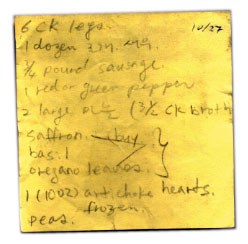 10/27
6 CK legs.
1 dozen
3/4 pound sausage.
1 red or green pepper
2 large (3 1/2 CK broth
saffron. buy
basil
oregano leaves.
1 (10oz) artichoke hearts.
frozen.
peas.